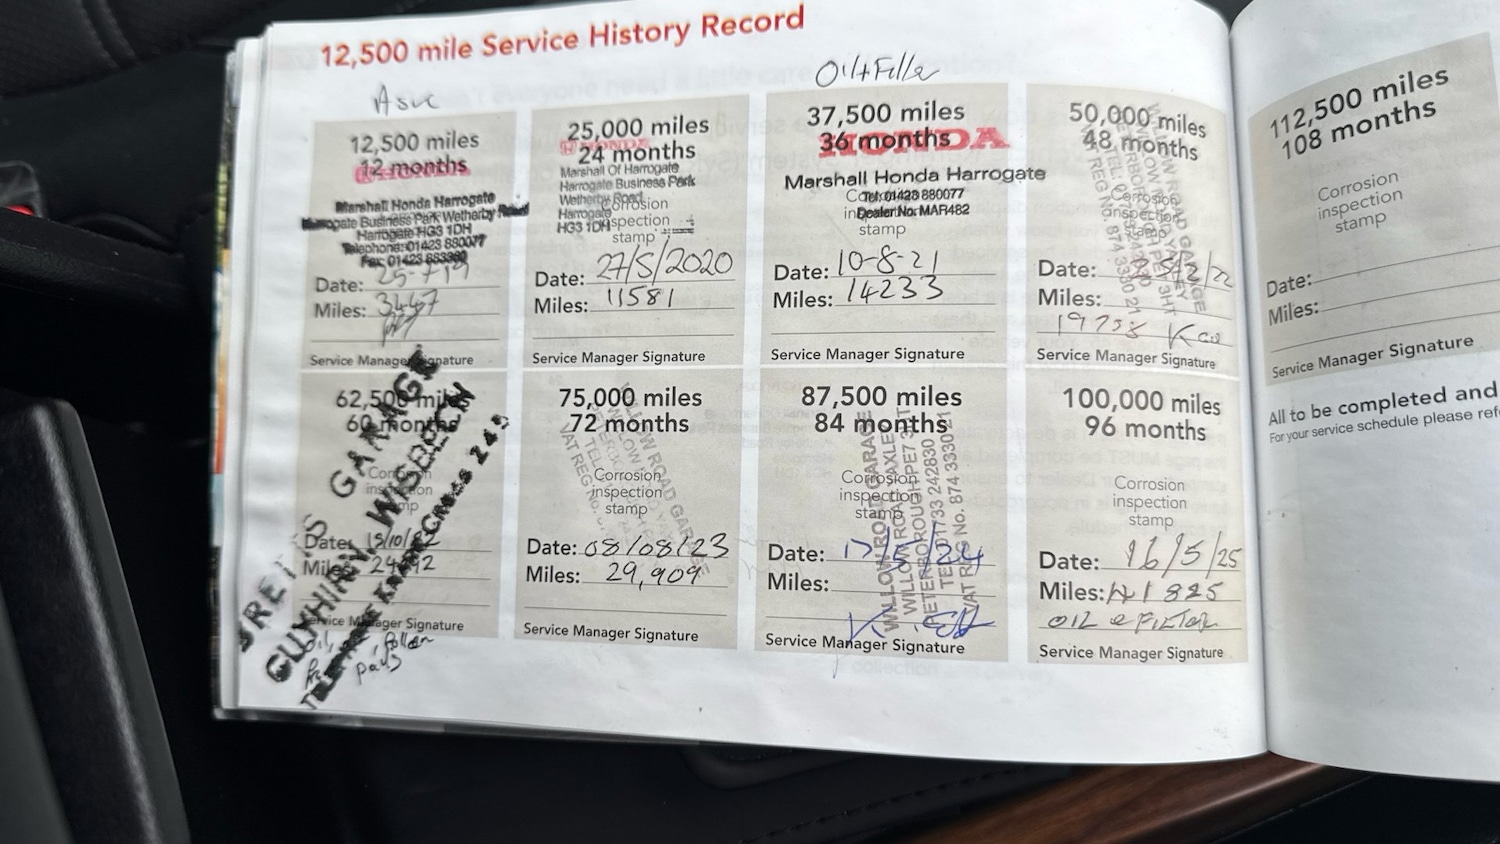 12,500 mile Service History Record
Oil+Filter
12,500 miles
12 months
Marshall Honda Harrogate
Harrogate Business Park Wetherby Road
Harrogate HG3 1DH
Telephone: 01423 880077
Date: 25-7-19
Miles: 3447
Service Manager Signature
25,000 miles
HONDA
24 months
Marshall Of Harrogate
Harrogate Business Park
Wetherby Road
Harrogate
HG3 1DH
Corrosion
inspection
stamp
Date: 27/5/2020
Miles: 11581
Service Manager Signature
37,500 miles
36 months
HONDA
Marshall Honda Harrogate
Tel: 01423 880077
Dealer No: MAR482
stamp
Date: 10-8-21
Miles: 14233
Service Manager Signature
50,000 miles
48 months
Corrosion
inspection
Date:
Miles:
Service Manager Signature
62,500 miles
60 months
GARAGE
GUYHIRN, WISBECH
Date: 15/10/
Miles:
Service Manager Signature
oil, pollen
pads
75,000 miles
72 months
WILLOW ROAD GARAGE
VAT REG No.
Corrosion
inspection
stamp
Date: 08/08/23
Miles: 29,909
Service Manager Signature
87,500 miles
84 months
WILLOW ROAD GARAGE
WILLOW ROAD YAXLEY
PETERBOROUGH PE7 3HT
TEL: 01733 242830
VAT REG No. 874 3330 21
Corrosion
inspection
stamp
Date: 17/5/24
Miles:
Service Manager Signature
100,000 miles
96 months
Corrosion
inspection
stamp
Date: 16/5/25
Miles: 41825
OIL & FILTER
Service Manager Signature
112,500 miles
108 months
Corrosion
inspection
stamp
Date:
Miles:
Service Manager Signature
All to be completed and
For your service schedule please